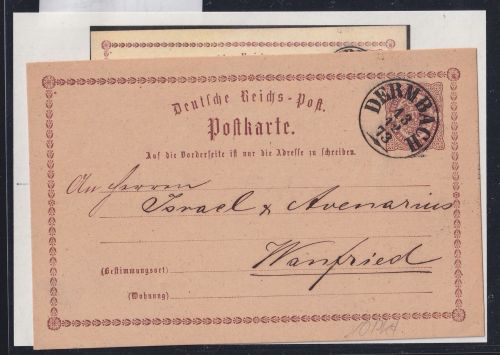 Deutsche Reichs-Post.
Postkarte.
DERMBACH
13
12
73
Auf die Vorderseite ist nur die Adresse zu schreiben.
An Herren
Israel & Avenarius
Wanfried
(Bestimmungsort)
(Wohnung)